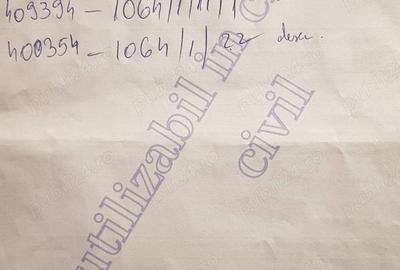 409394 – 1064/1/1/1/1
400354 – 1064/1/22 desc.
utilizabil in c
civil